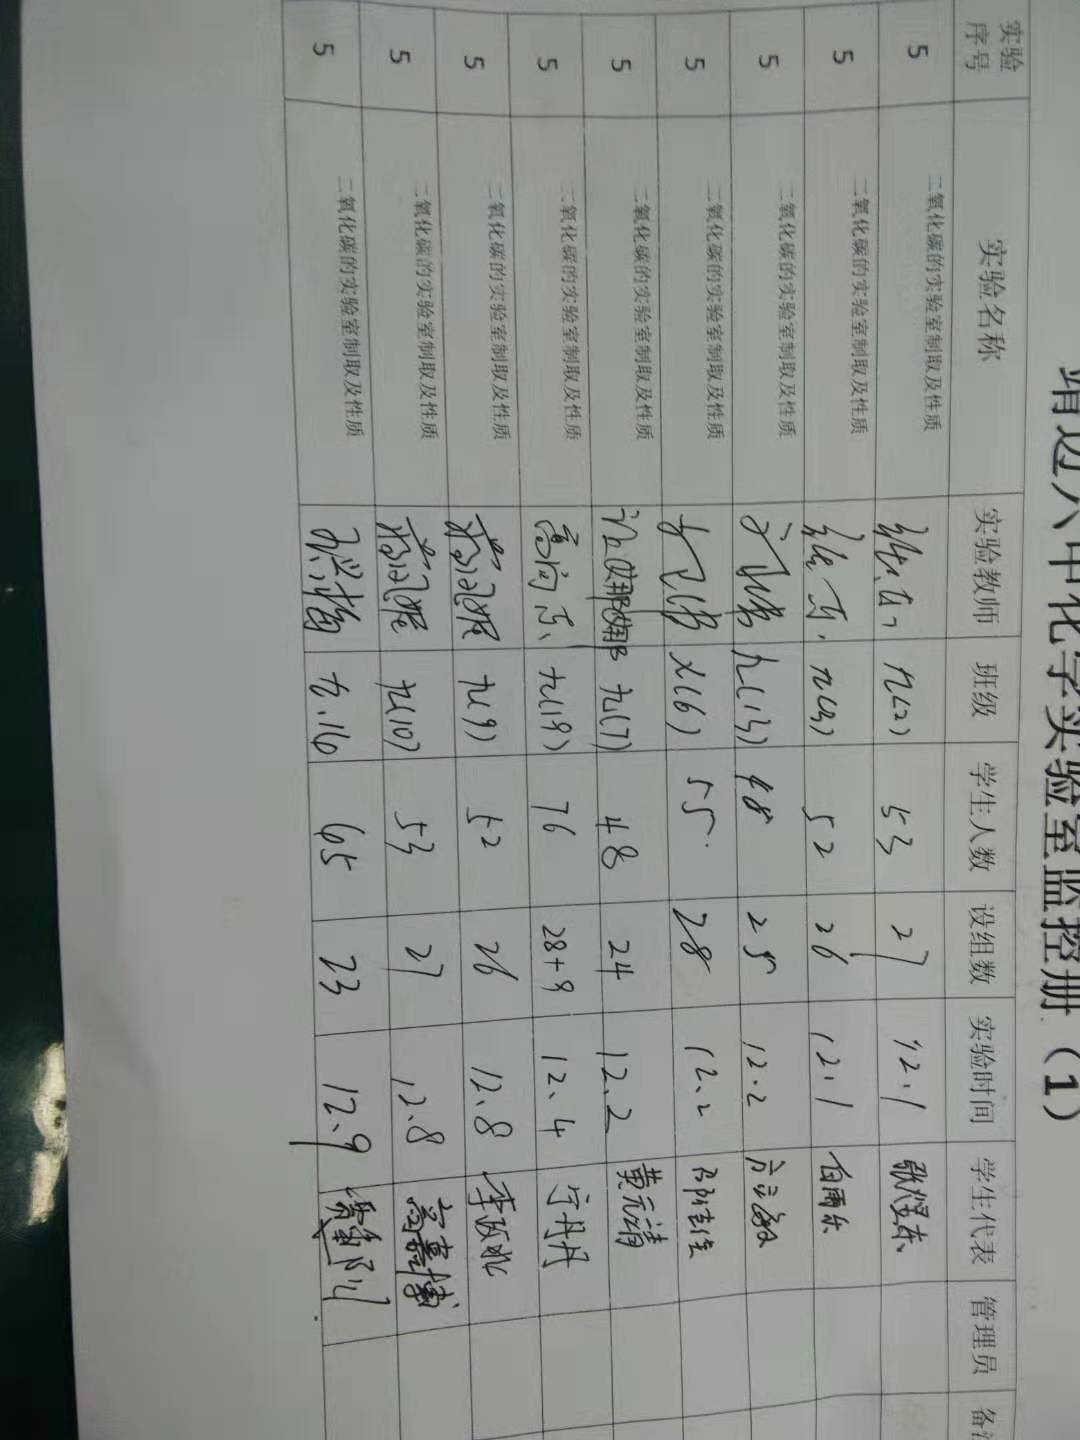 靖边六中化学实验室监控册（1）
实验序号 实验名称 实验教师 班级 学生人数 设组数 实验时间 学生代表 管理员
5 二氧化碳的实验室制取及性质 九(2) 53 27 12.1
5 二氧化碳的实验室制取及性质 九(3) 52 26 12.1 白雨东
5 二氧化碳的实验室制取及性质 九(13) 48 25 12.2
5 二氧化碳的实验室制取及性质 九(6) 55 28 12.2
5 二氧化碳的实验室制取及性质 九(7) 48 24 12.2 黄元靖
5 二氧化碳的实验室制取及性质 九(19) 76 28+9 12.4 宁丹丹
5 二氧化碳的实验室制取及性质 九(9) 52 26 12.8
5 二氧化碳的实验室制取及性质 九(10) 53 27 12.8 高嘉博
5 二氧化碳的实验室制取及性质 九.16 65 33 12.9